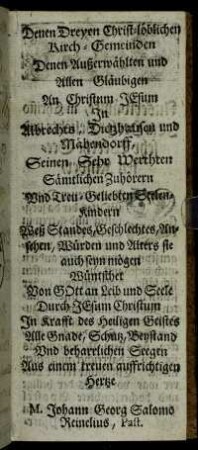 Denen Dreyen Christ-löblichen
Kirch-Gemeinden
Denen Außerwählten und
Allen Gläubigen
An Christum JEsum
In
Albrechts, Dietzhausen und
Mäbendorff,
Seinen Sehr Werthen
Sämtlichen Zuhörern
Und Treu-Geliebten Seelen-
Kindern
Weß Standes, Geschlechtes, An-
sehen, Würden und Alters sie
auch seyn mögen
Wüntschet
Von GOtt an Leib und Seele
Durch JEsum Christum
In Krafft des Heiligen Geistes
Alle Gnade, Schutz, Beystand
Und beharrlichen Seegen
Aus einem treuen auffrichtigen
Hertze
M. Johann Georg Salomo
Reinelius, Past.